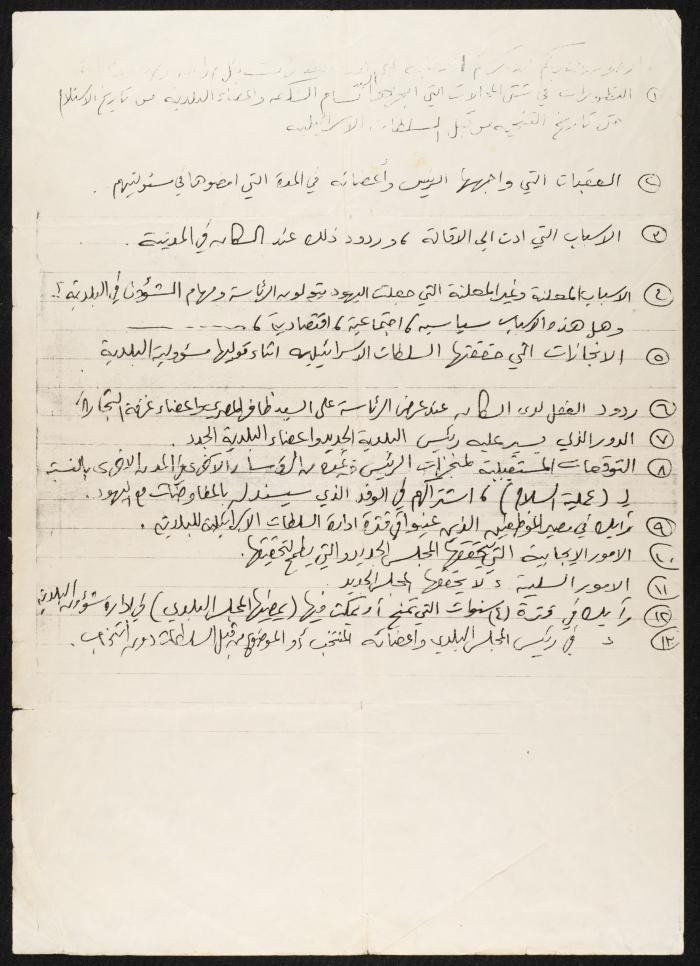 ① التطورات في شتى المجالات التي اجريت بسام الشكعه واعضاء البلدية من تاريخ الاستلام
حتى تاريخ التنحيه من قبل السلطات الاسرائيليه
② العقبات التي واجهها الرئيس وأعضائه في المدة التي امضوها في مسئوليتهم .
③ الاسباب التي ادت الى الاقالة ، وردود ذلك عند السكان في المدينة .
④ الاسباب المعلنة وغير المعلنة التي جعلت اليهود يتولون الرئاسة ومهام الشؤون في البلدية ؟.
وهل هذه الاسباب سياسيه ، اجتماعية ، اقتصادية ، ......
⑤ الانجازات التي حققتها السلطات الاسرائيليه اثناء توليها مسؤولية البلدية
⑥ ردود الفعل لدى السكان عند عرض الرئاسة على السيد ظافر المصري واعضاء غرفة التجارة ،
⑦ الدور الذي يسير عليه رئيس البلدية الجديد واعضاء البلدية الجدد .
⑧ التوقعات المستقبلية لمنجزات الرئيس من الرؤساء الآخرين والمدن الاخرى بالنسبة
لـ (عملية السلام) ، اشتراكهم في الوفد الذي سيستدل بالمفاوضات مع اليهود .
⑨ رأيك في مصير الموظفين الذين عينوا في فترة ادارة السلطات الاسرائيلية للبلدية .
⑩ الامور الايجابية التي يحققها المجلس الجديد والتي يطمح لتحقيقها .
⑪ الامور السلبية ء لا يحققها المجلس الجديد
⑫ رأيك في فترة (٤) سنوات التي تمنح أو يمكث فيها (يمضيها المجلس البلدي) في ادارة شؤون البلدية
⑬ ء في رئيس المجلس البلدي واعضائه المنتخب ، أو الموضوع من قبل السلطات دون انتخاب .